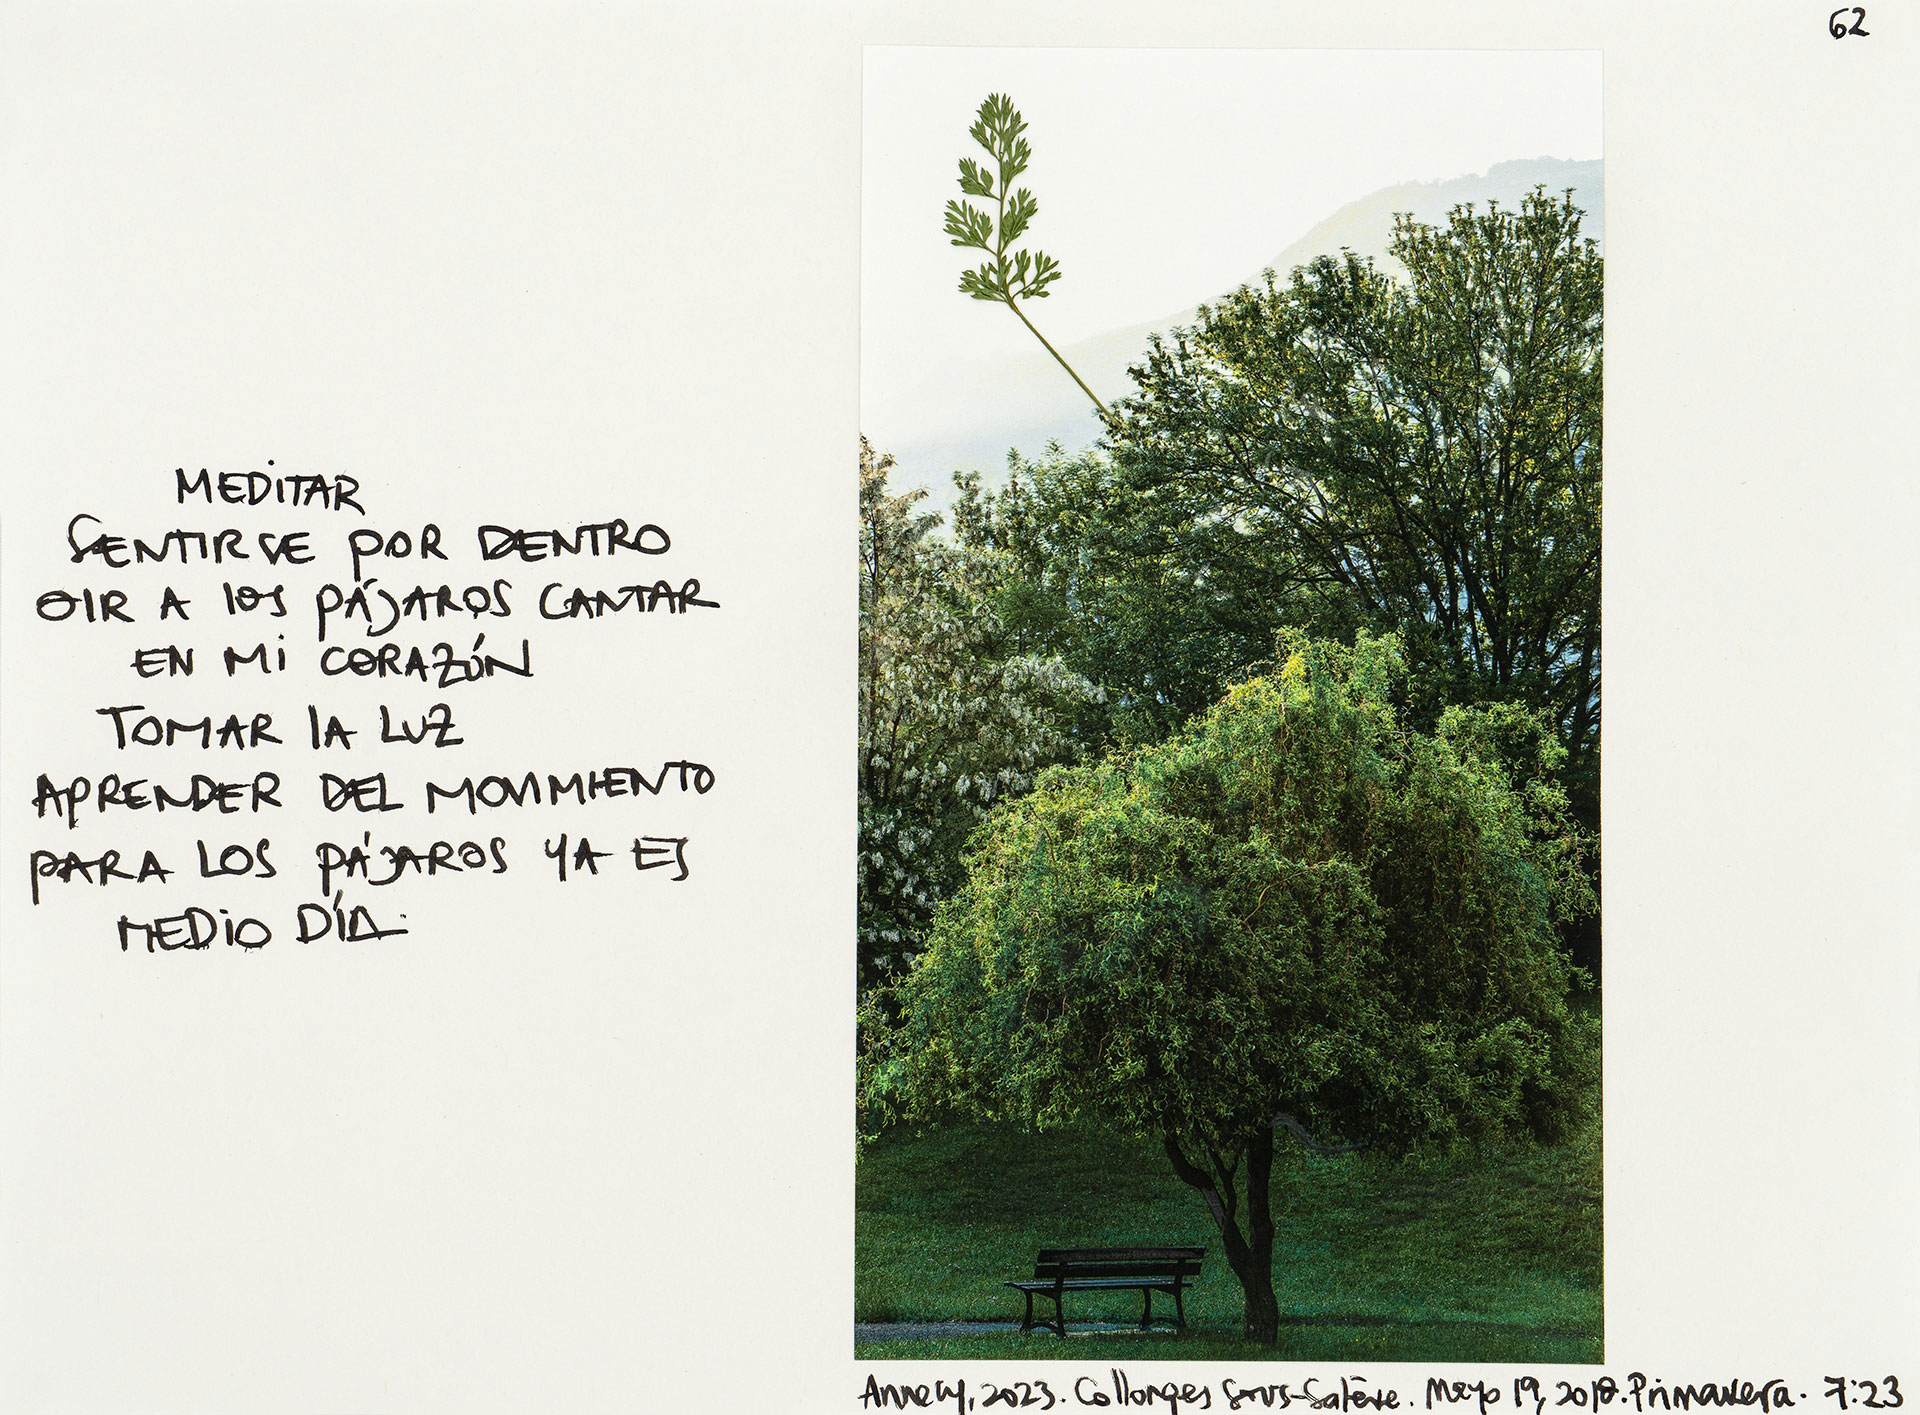 62
MEDITAR
SENTIRSE POR DENTRO
OIR A los PÁJAROS CANTAR
EN Mi CORAZÓN
TOMAR lA LUZ
APRENDER DEL MOVIMIENTO
PARA LOS PÁJAROS YA ES
MEDiO DÍA.
Annecy, 2023. Collonges Sous-Salève. Mayo 19, 2018. Primavera. 7:23